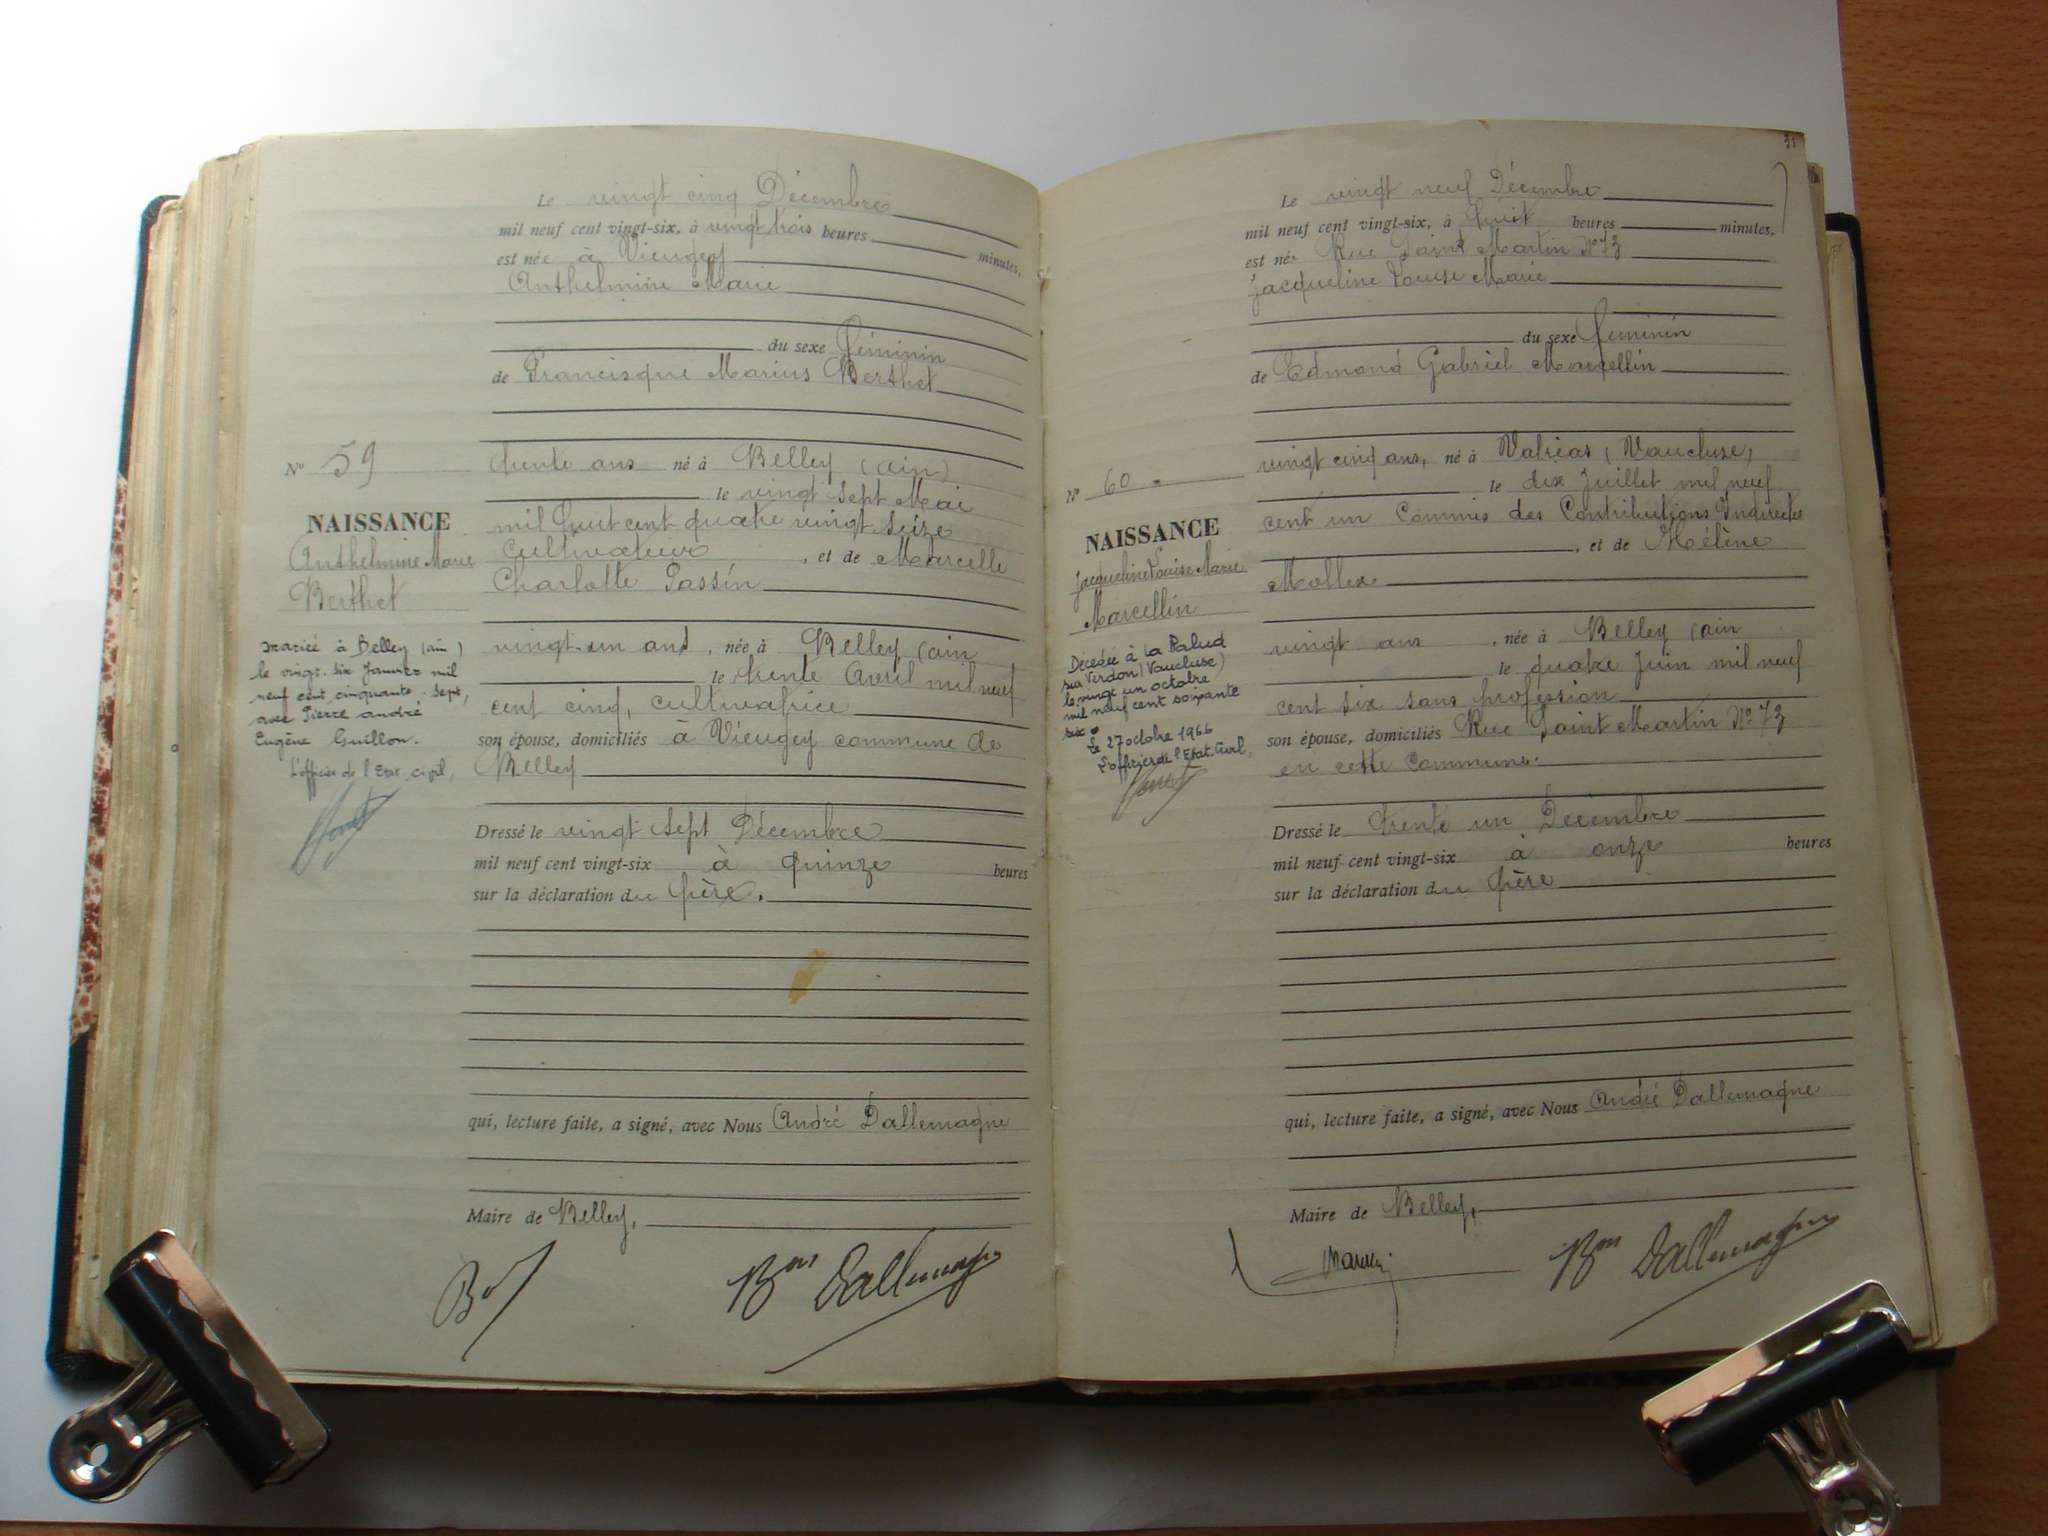 Le vingt cinq Décembre
mil neuf cent vingt-six, à vingt trois heures minutes,
est née à Vieugey
Anthelmine Marie
du sexe féminin
de Francisque Marius Berthet
trente ans né à Belley (ain)
le vingt sept Mai
mil huit cent quatre vingt seize
Cultivateur, et de Marcelle
Charlotte Passin
vingt-un ans, née à Belley (ain
le trente Avril mil neuf
cent cinq, cultivatrice
son épouse, domiciliés à Vieugey commune de
Belley
Dressé le vingt sept Décembre
mil neuf cent vingt-six à quinze heures
sur la déclaration du père.
qui, lecture faite, a signé, avec Nous André Dallemagne
Maire de Belley,
Bon Dallemagne
No 59
NAISSANCE
Anthelmine Marie
Berthet
mariée à Belley (ain)
le vingt-six Janvier mil
neuf cent cinquante-sept,
avec Pierre andré
Eugène Guillon.
L'officier de l'Etat civil,
31
Le vingt neuf Décembre
mil neuf cent vingt-six, à huit heures minutes,
est née Rue Saint Martin No 73
Jacqueline Louise Marie
du sexe féminin
de Edmond Gabriel Marcellin
vingt cinq ans, né à Valréas (Vaucluse)
le dix Juillet mil neuf
cent un Commis des Contributions Indirectes
, et de Hélène
Mollex
vingt ans, née à Belley (ain
le quatre Juin mil neuf
cent six sans profession
son épouse, domiciliés Rue Saint Martin No 73
en cette commune.
Dressé le trente un Décembre
mil neuf cent vingt-six à onze heures
sur la déclaration du père
qui, lecture faite, a signé, avec Nous André Dallemagne
Maire de Belley,
Bon Dallemagne
No 60
NAISSANCE
Jacqueline Louise Marie
Marcellin
Décédée à la Palud
sur Verdon (Vaucluse)
le vingt un octobre
mil neuf cent soixante
six.
Le 27 octobre 1966
L'officier de l'Etat-Civil,